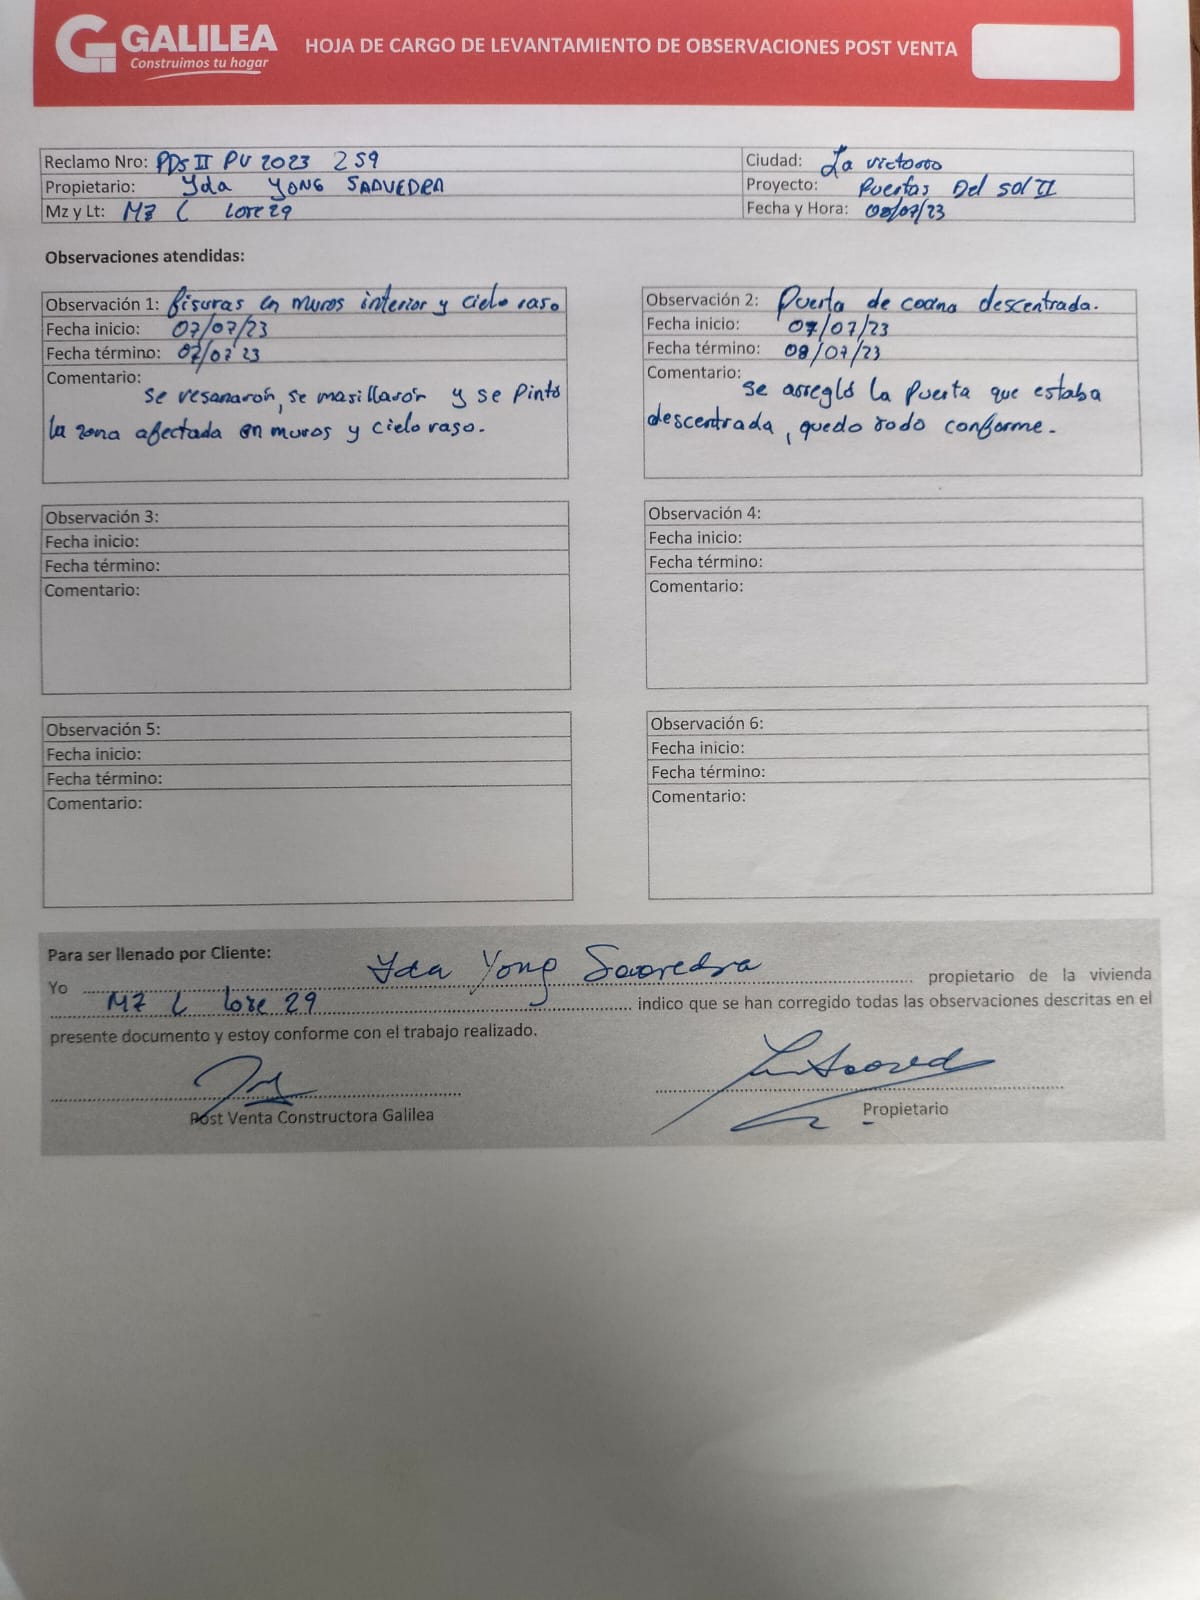 GALILEA
Construimos tu hogar
HOJA DE CARGO DE LEVANTAMIENTO DE OBSERVACIONES POST VENTA
Reclamo Nro: PDS II PV 2023 259
Ciudad: La victoria
Propietario: Yda YONG SAAVEDRA
Proyecto: Puertas Del sol II
Mz y Lt: MZ C Lote 29
Fecha y Hora: 08/07/23
Observaciones atendidas:
Observación 1: fisuras en muros interior y cielo raso
Fecha inicio: 07/07/23
Fecha término: 07/07/23
Comentario:
se resanarón, se masillarón y se Pinto
la zona afectada en muros y cielo raso.
Observación 2: Puerta de cocina descentrada.
Fecha inicio: 07/07/23
Fecha término: 08/07/23
Comentario:
se arregló la puerta que estaba
descentrada, quedo todo conforme.
Observación 3:
Fecha inicio:
Fecha término:
Comentario:
Observación 4:
Fecha inicio:
Fecha término:
Comentario:
Observación 5:
Fecha inicio:
Fecha término:
Comentario:
Observación 6:
Fecha inicio:
Fecha término:
Comentario:
Para ser llenado por Cliente:
Yo Yda Yong Saavedra propietario de la vivienda
MZ C Lote 29 indico que se han corregido todas las observaciones descritas en el
presente documento y estoy conforme con el trabajo realizado.
Post Venta Constructora Galilea
Propietario